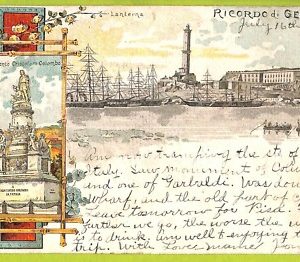 Lanterna
RICORDO di GE
July 16th
ento Cristoforo Colombo
Am now tramping the sts of
Italy. Saw monument of Colum
and one of Garibaldi. Was dow
Wharf and the old part of
leave tomorrow for Pisa.
further we go, the worse the
is to drink, am well & enjoying the
trip. With Love, Mame